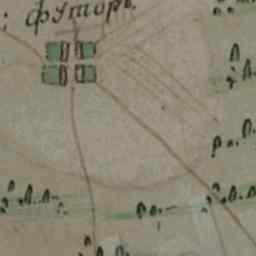 футоръ.